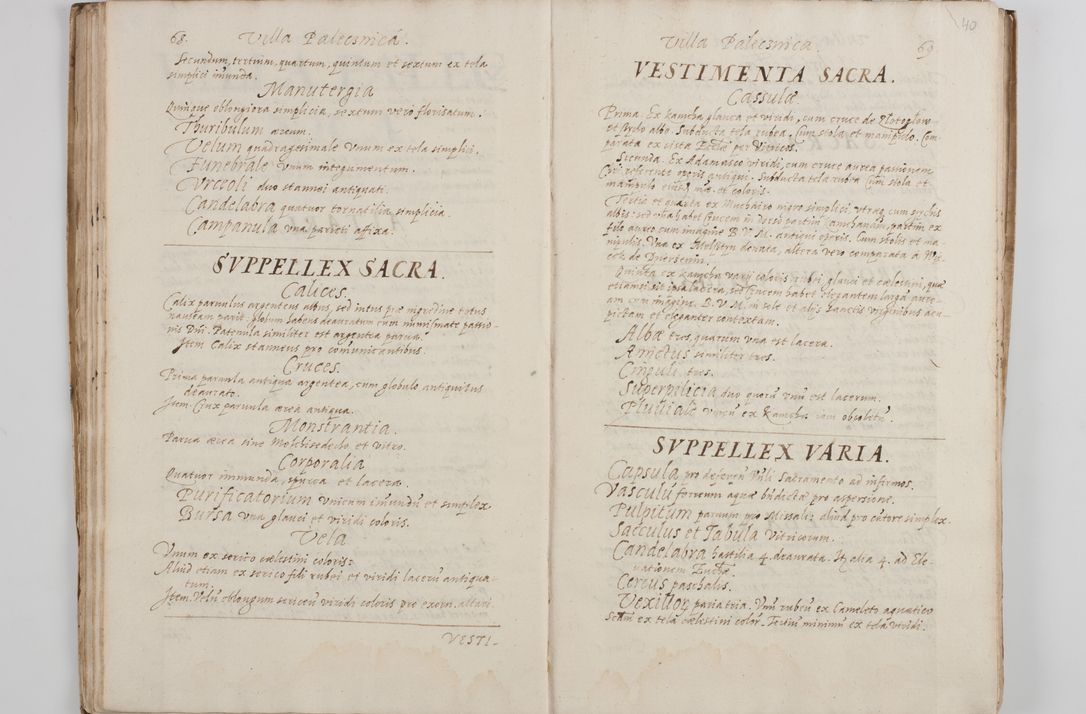 68. Villa Paleesnica.
Secundum, tertium, quartum, quintum et sextum ex tela
simplici immunda.
Manutergia
Quinque oblongiora simplicia, sextum vero florisatum.
Thuribulum æreum.
Velum quadragesimale Vnum ex tela simplici.
Funebrale vnum integumentum.
Vrceoli duo stannei antiquati.
Candelabra quatuor tornatilia simplicia.
Campanula vna parieti affixa.
SVPPELLEX SACRA.
Calices.
Calix parvulus argenteus albus, sed intus præ ingredine totus
Globum habens deauratum cum numismate passio-
nis Dñi. Patenula similiter est argentea parva.
Item Calix stanneus pro comunicantibus.
Cruces.
Prima parvula antiqua argentea, cum globulo antiquitus
deaurato.
Item Crux parvula ærea antiqua.
Monstrantia.
Parva ærea sine Melchisedecho et vitro.
Corporalia
Quatuor immunda, spurca et lacera.
Purificatorium Vnicum imundũ et simplex.
Bursa vna glauci et viridi coloris.
Vela
Vnum ex serico cælestini coloris.
Aliud etiam ex serico fili rubei, et viridi lacerũ antiqua-
tum.
Item Velũ oblongum sericeũ viridi coloris pro exorn. altari
VESTI-
40
Villa Paleesnica. 69
VESTIMENTA SACRA.
Cassulæ
Prima. Ex Kamcha glauca et viridi, cum cruce de
et albo. Subducta tela rubea. Cum stola et manipulo. Com-
parata ex cista Ecclæ per Vitricos.
Secunda. Ex Adamasco viridi, cum cruce aurea passionem
Chri referente operis antiqui. Subducta tela rubea Cum stola et
manipulo eiusd. mãe. et coloris.
Tertia et quarta ex Muchairo nigro simplici, vtraq cum
albis: sed vna habet Crucem in dorso partim partim ex
filo aureo cum imagine B.V.M. antiqui operis. Cum stolis et ma-
nipulis. Vna ex donata, altera vero comparata à
de
Quinta ex Kamcha varii coloris rubri, glauci et cælestini, quæ
etiamsi sit ipsa lacera, sed Crucem habet elegantem larga aure-
am cum imagine B.V.M. in sole et alijs sanctis virginibus acu-
pictam et eleganter contextam.
Albæ tres, quarum vna est lacera.
Amictus similiter tres.
Cinguli tres.
Superpilicia duo quorũ vnũ est lacerum.
Pluviale vnicũ ex Kamcha iam obsoletũ.
SVPPELLEX VARIA.
Capsula pro deferen Vnli Sacramento ad infirmos.
Vasculũ ferreum aquæ bndictæ pro aspersione.
Pulpitum parvum pro Missali; aliud pro cantore simplex.
Sacculus et Tabula Vitricorum.
Candelabra hastilia 4. deaurata. It. alia 4. ad Ele-
vationem Euchæ.
Cereus paschalis.
Vexillor paria tria. Vnũ rubeũ ex Cameleto aquatico
Scdm ex tela cælestini color. Tertiũ minimũ ex tela viridi.